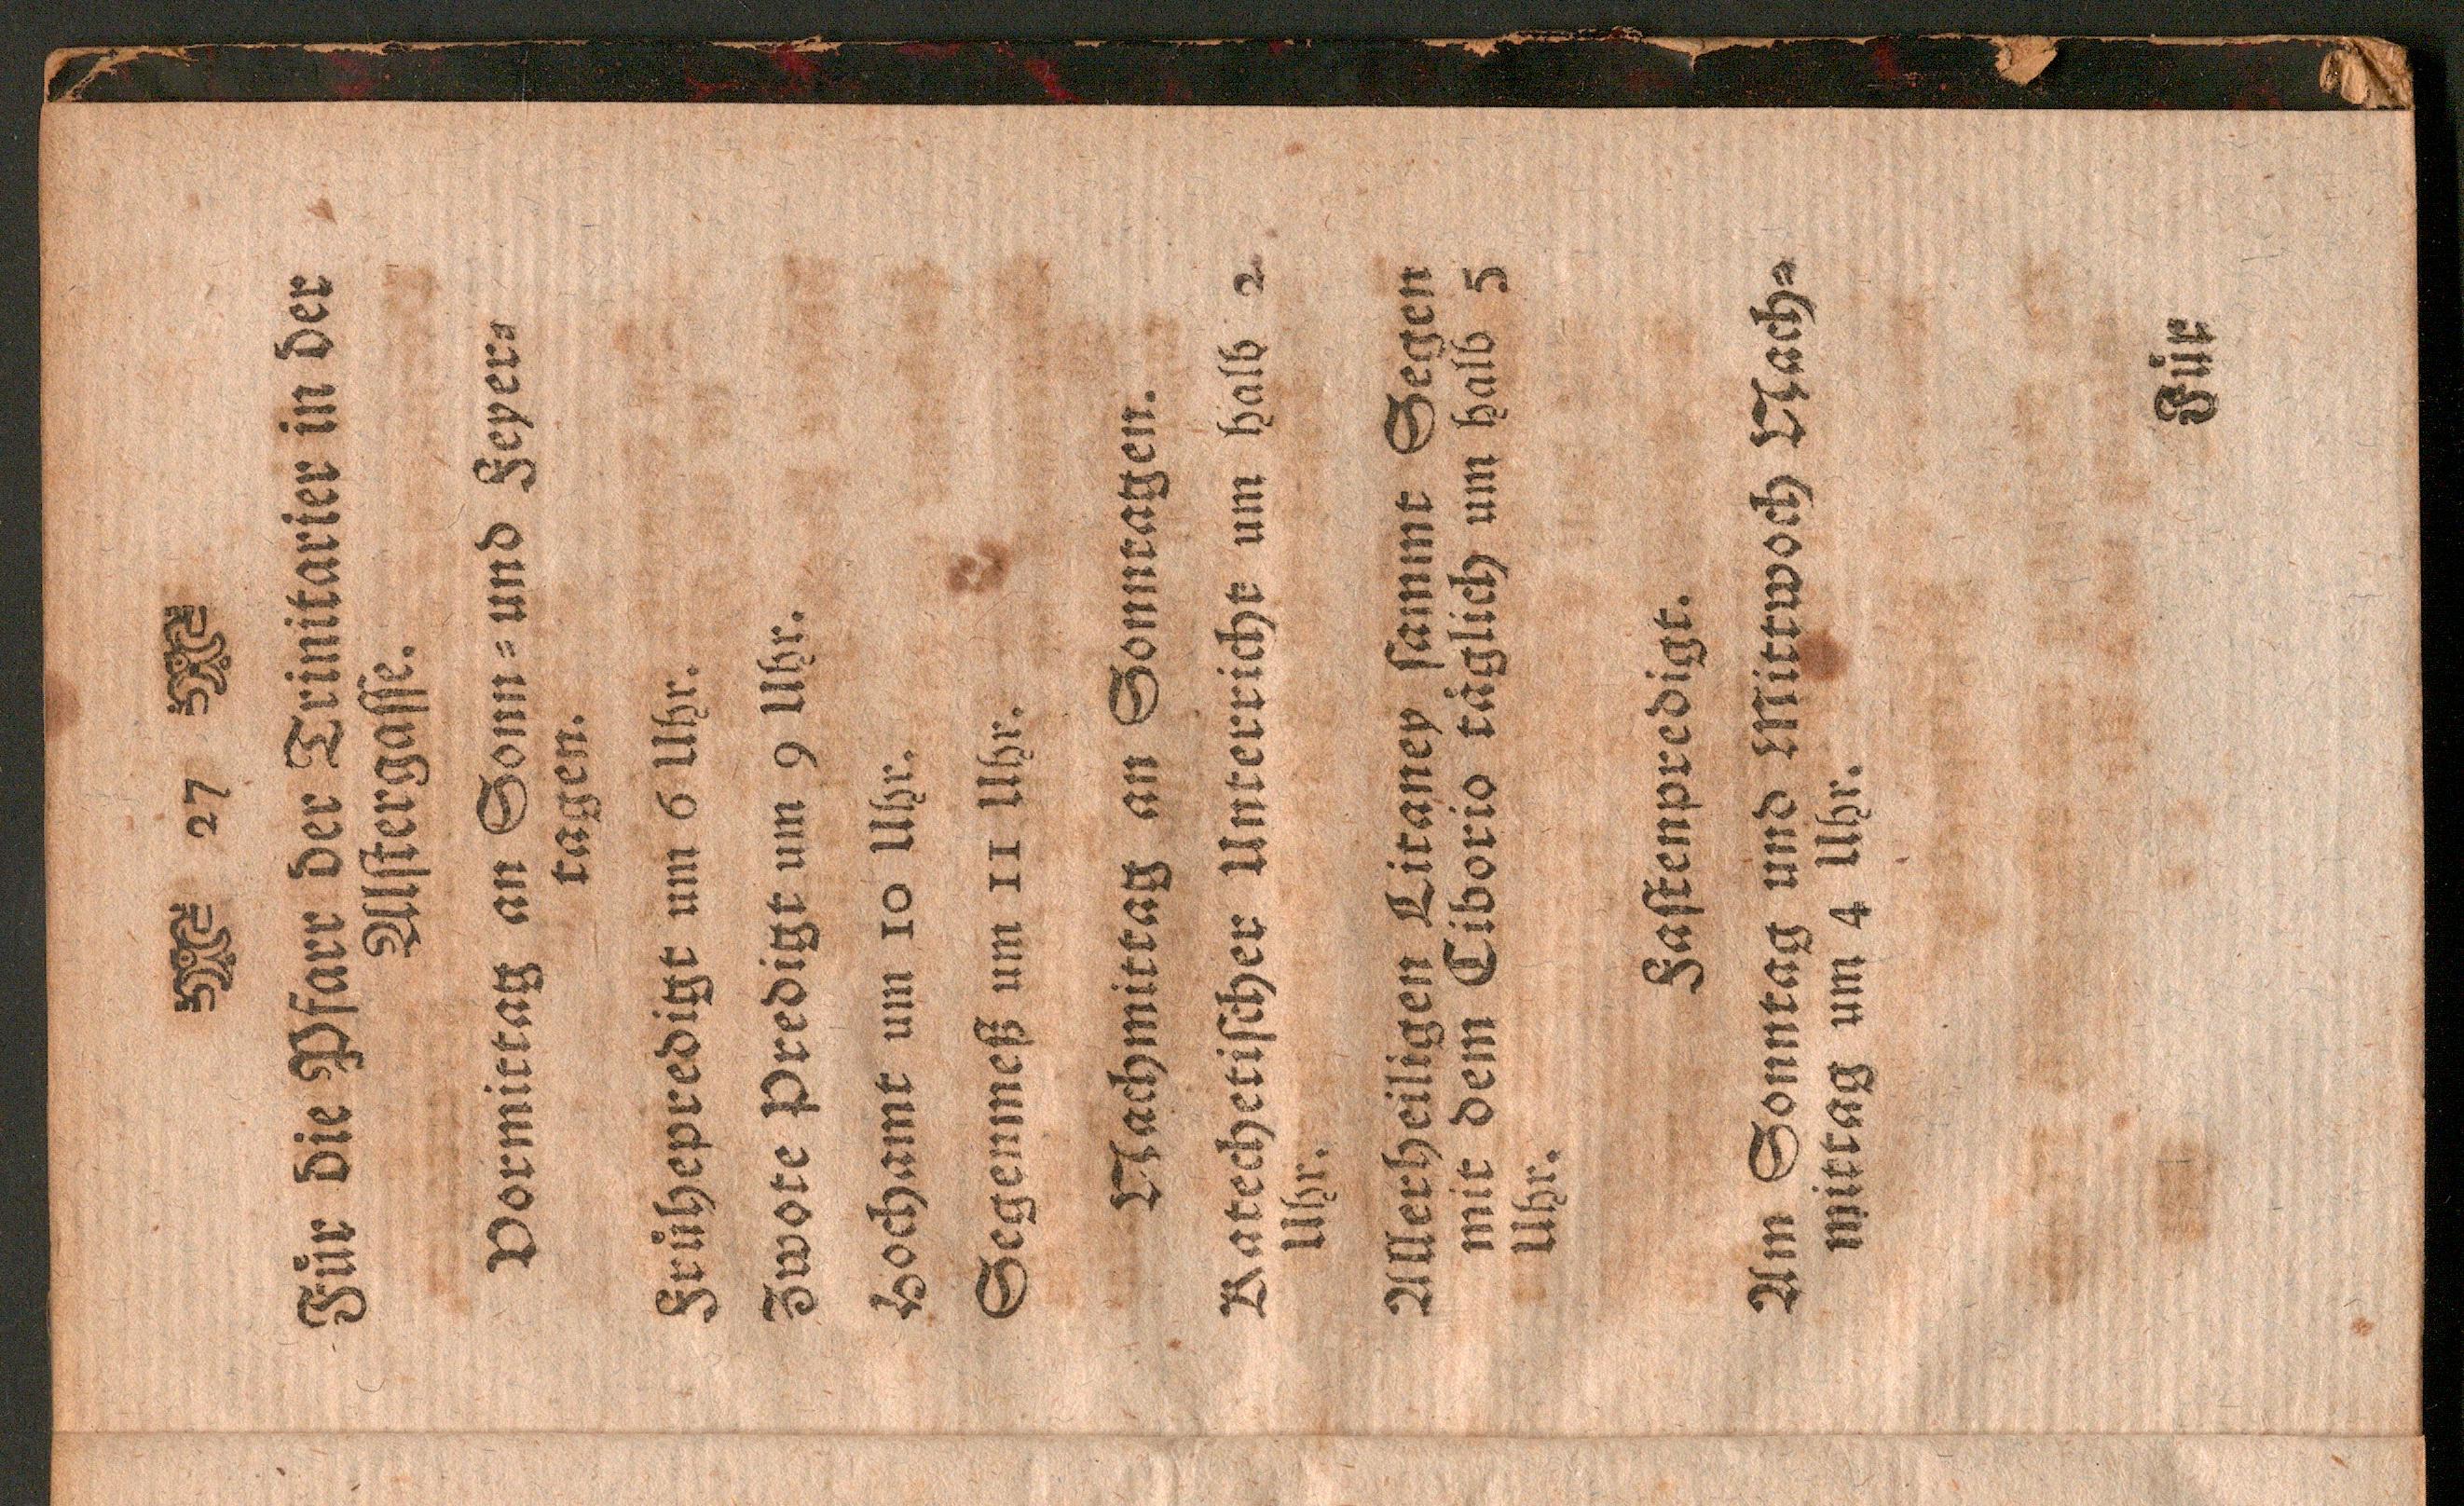 27
Für die Pfarr der Trinitarier in der
Alstergasse.
Vormittag an Sonn=und Feyer=
tagen.
Frühepredigt um 6 Uhr.
Zwote Predigt um 9 Uhr.
Hochamt um 10 Uhr.
Segenmeß um 11 Uhr.
Nachmittag an Sonntagen.
Katechetischer Unterricht um halb 2
Uhr.
Allerheiligen Litaney sammt Segen
mit dem Ciborio täglich um halb 5
Uhr.
Fastenpredigt.
Am Sonntag und Mittwoch Nach=
mittag um 4 Uhr.
Für